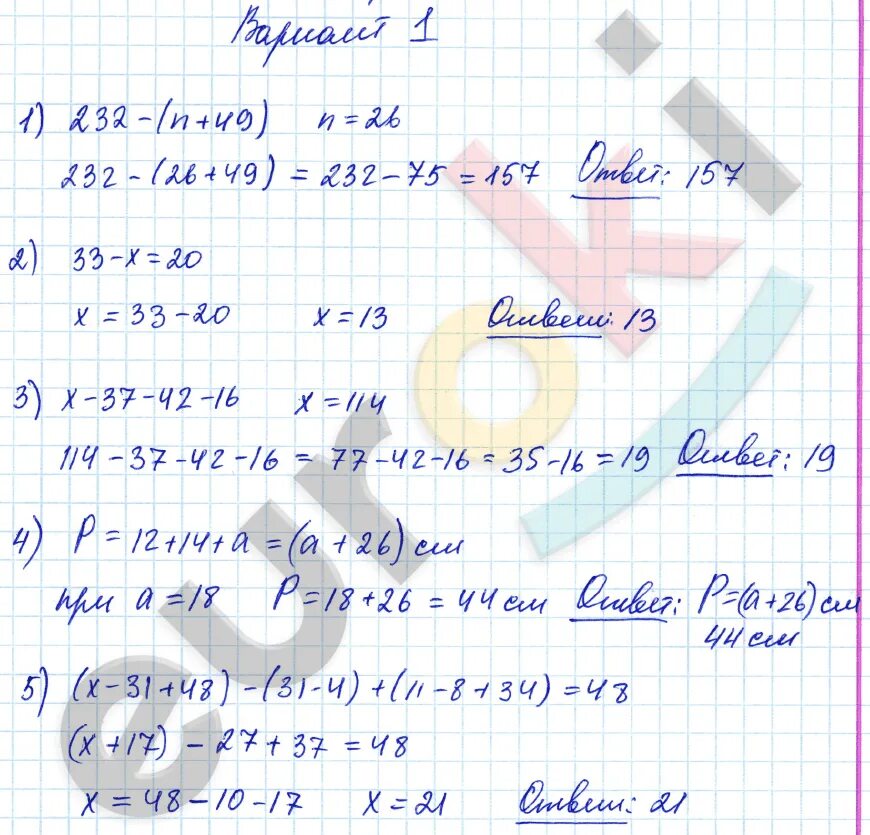 Вариант 1
1) 232-(n+49) n=26
232-(26+49) = 232-75 = 157 Ответ: 157
2) 33-x=20
x = 33-20 x=13 Ответ: 13
3) x-37-42-16 x=114
114-37-42-16 = 77-42-16 = 35-16 = 19 Ответ: 19
4) P = 12+14+a = (a+26) см
при a=18 P=18+26=44 см Ответ: P=(a+26) см
44 см
5) (x-31+48)-(31-4)+(11-8+34)=48
(x+17) - 27+37 = 48
x = 48-10-17 x=21 Ответ: 21
euroki